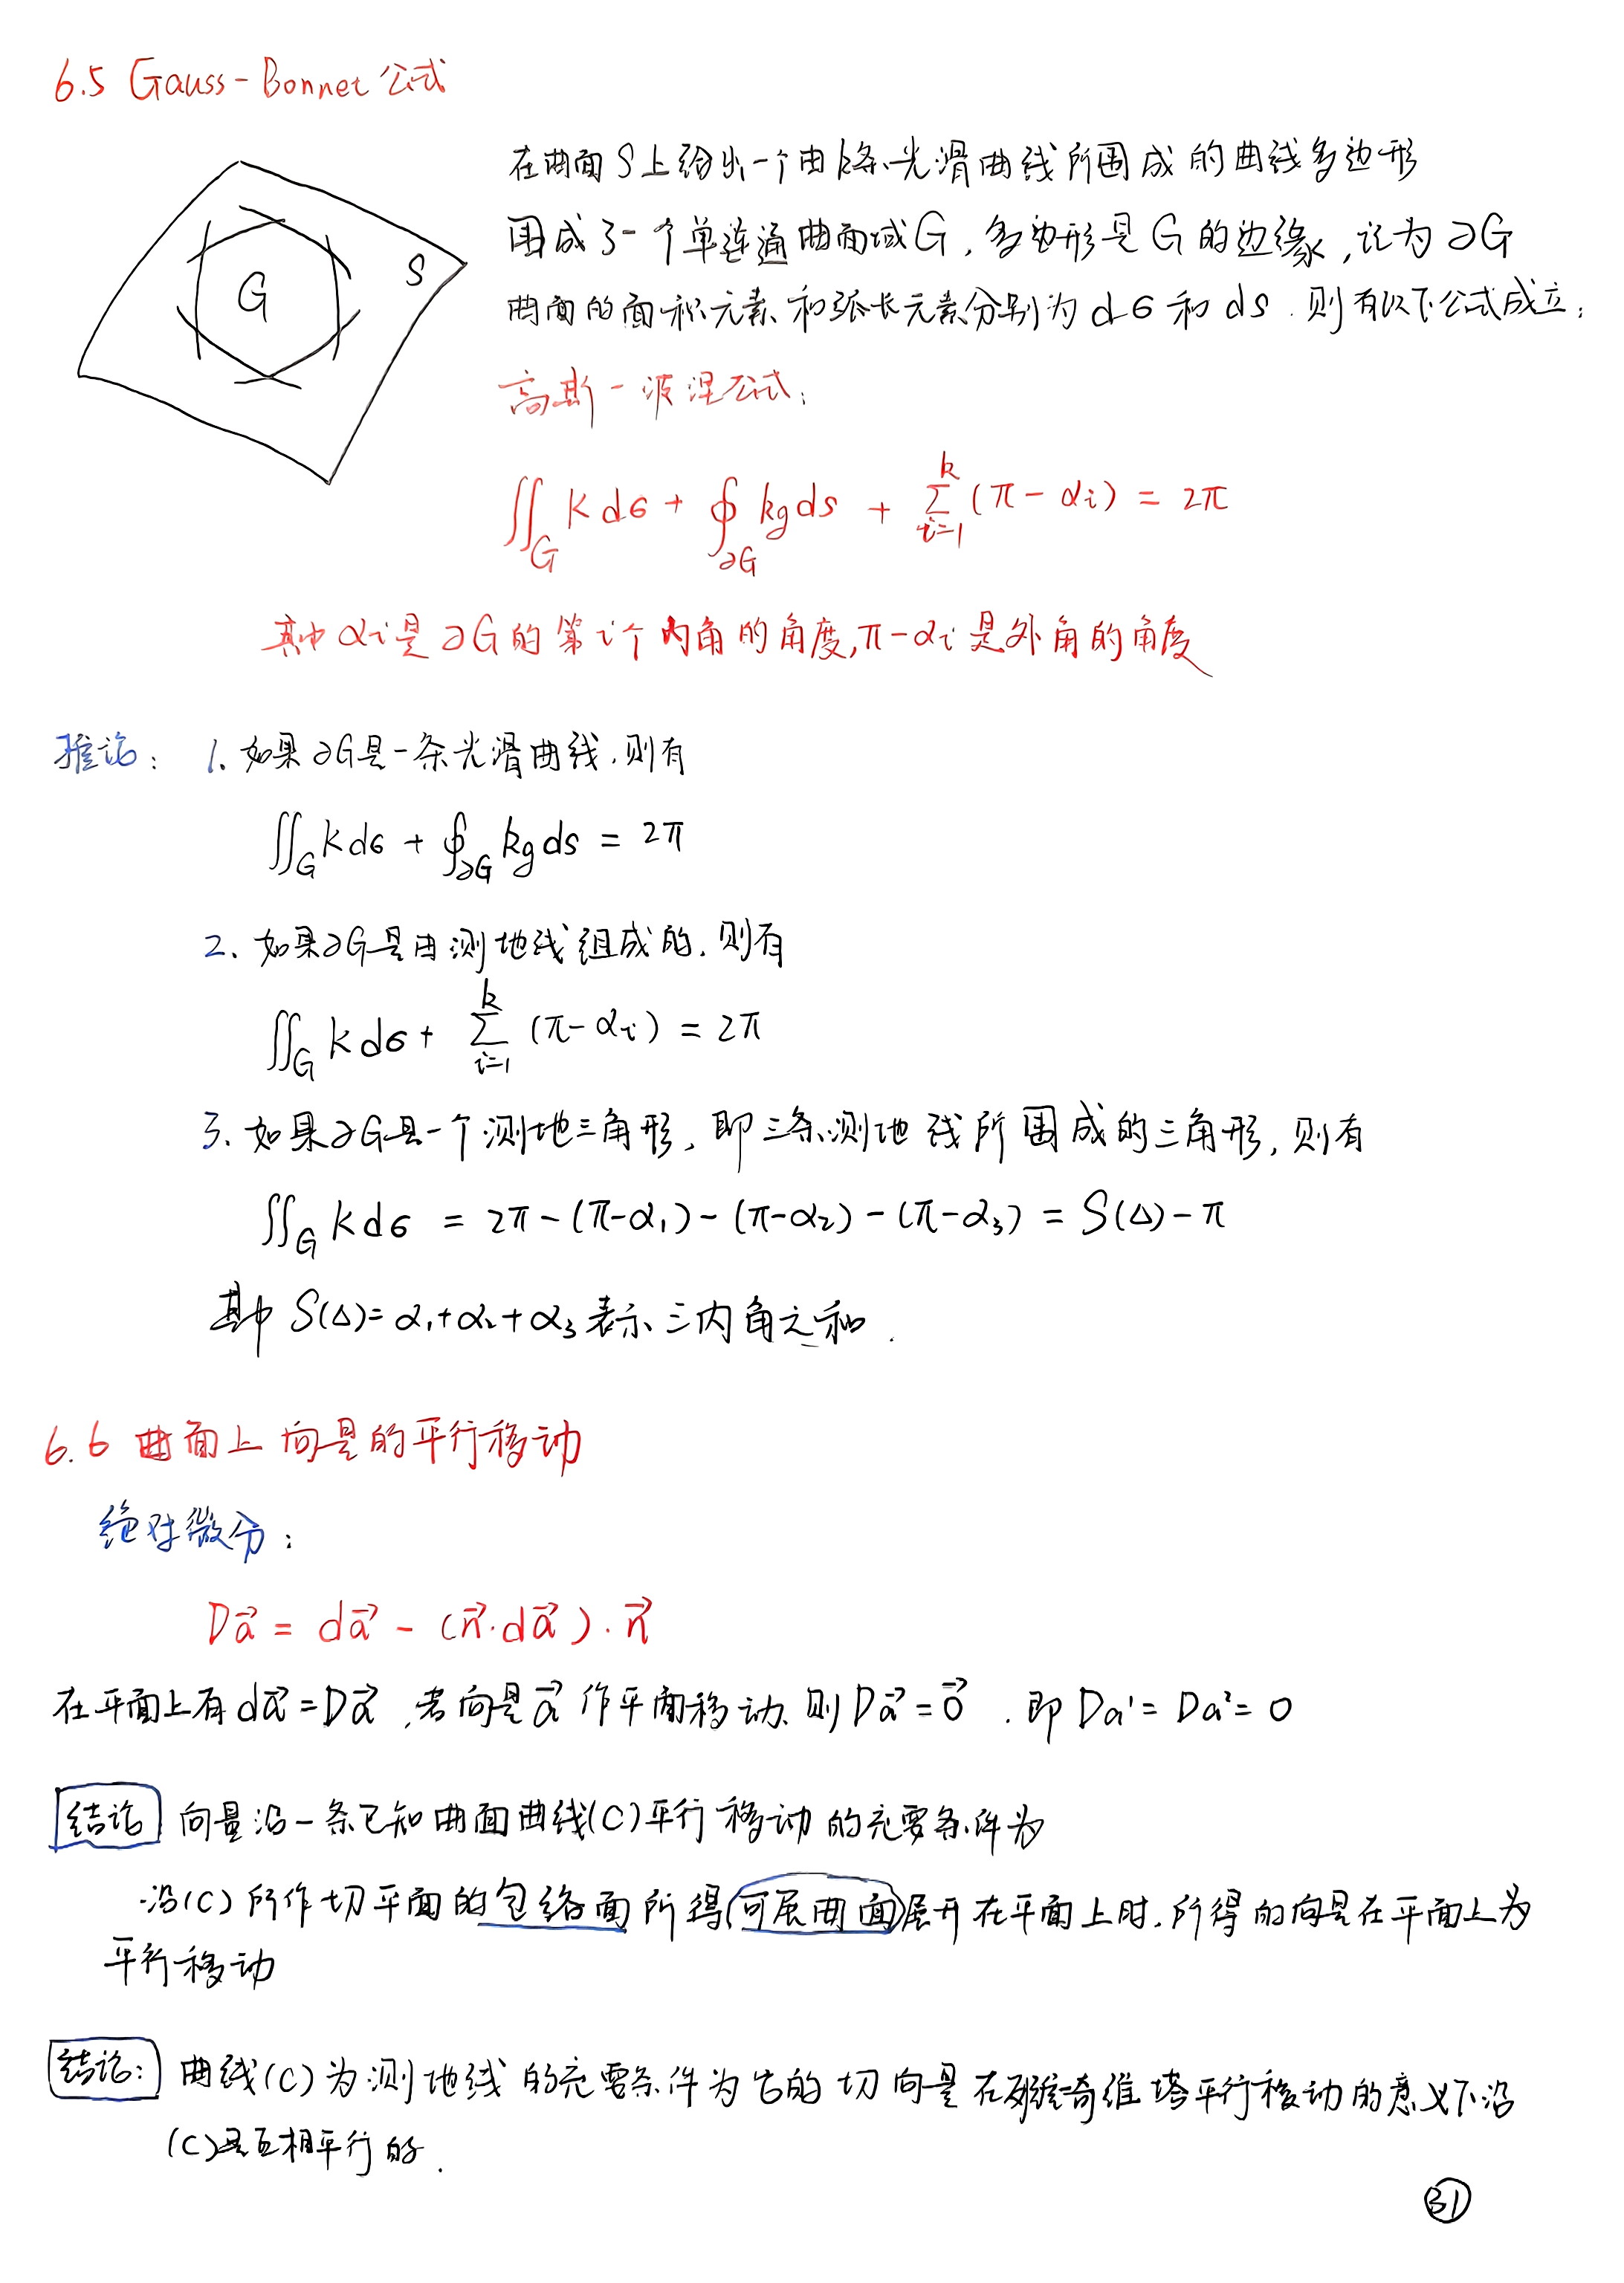 6.5 Gauss-Bonnet 公式
在曲面S上给出一个由k条光滑曲线所围成的曲线多边形
围成了一个单连通曲面域G,多边形是G的边缘,记为∂G
曲面的面积元素和弧长元素分别为dσ和ds.则有以下公式成立:
G
S
高斯-波涅公式:
∬_G K dσ + ∮_∂G kg ds + ∑_{i=1}^{k} (π-αi) = 2π
其中αi是∂G的第i个内角的角度,π-αi是外角的角度
推论: 1. 如果∂G是一条光滑曲线.则有
∬_G K dσ + ∮_∂G kg ds = 2π
2. 如果∂G是由测地线组成的.则有
∬_G K dσ + ∑_{i=1}^{k} (π-αi) = 2π
3. 如果∂G是一个测地三角形,即三条测地线所围成的三角形,则有
∬_G K dσ = 2π-(π-α₁)-(π-α₂)-(π-α₃) = S(Δ)-π
其中 S(Δ)=α₁+α₂+α₃表示三内角之和.
6.6 曲面上向量的平行移动
绝对微分:
Da⃗ = da⃗ - (n⃗·da⃗)·n⃗
在平面上有da⃗=Da⃗,若向量a⃗作平面移动、则Da⃗=0⃗.即Da¹=Da²=0
结论 向量沿一条已知曲面曲线(C)平行移动的充要条件为
沿(C)所作切平面的包络面所得可展曲面展开在平面上时.所得的向量在平面上为
平行移动
结论: 曲线(C)为测地线的充要条件为它的切向量在列维奇维塔平行移动的意义下沿
(C)是互相平行的.
31